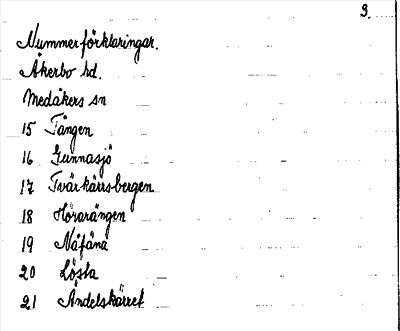 3.
Nummerförklaringar.
Åkerbo hd.
Medåkers sn
15 Tången
16 Gunnasjö
17 Tvärkärrsbergen
18 Hörarängen
19 Nåfäna
20 Lösta
21 Åndelskärret